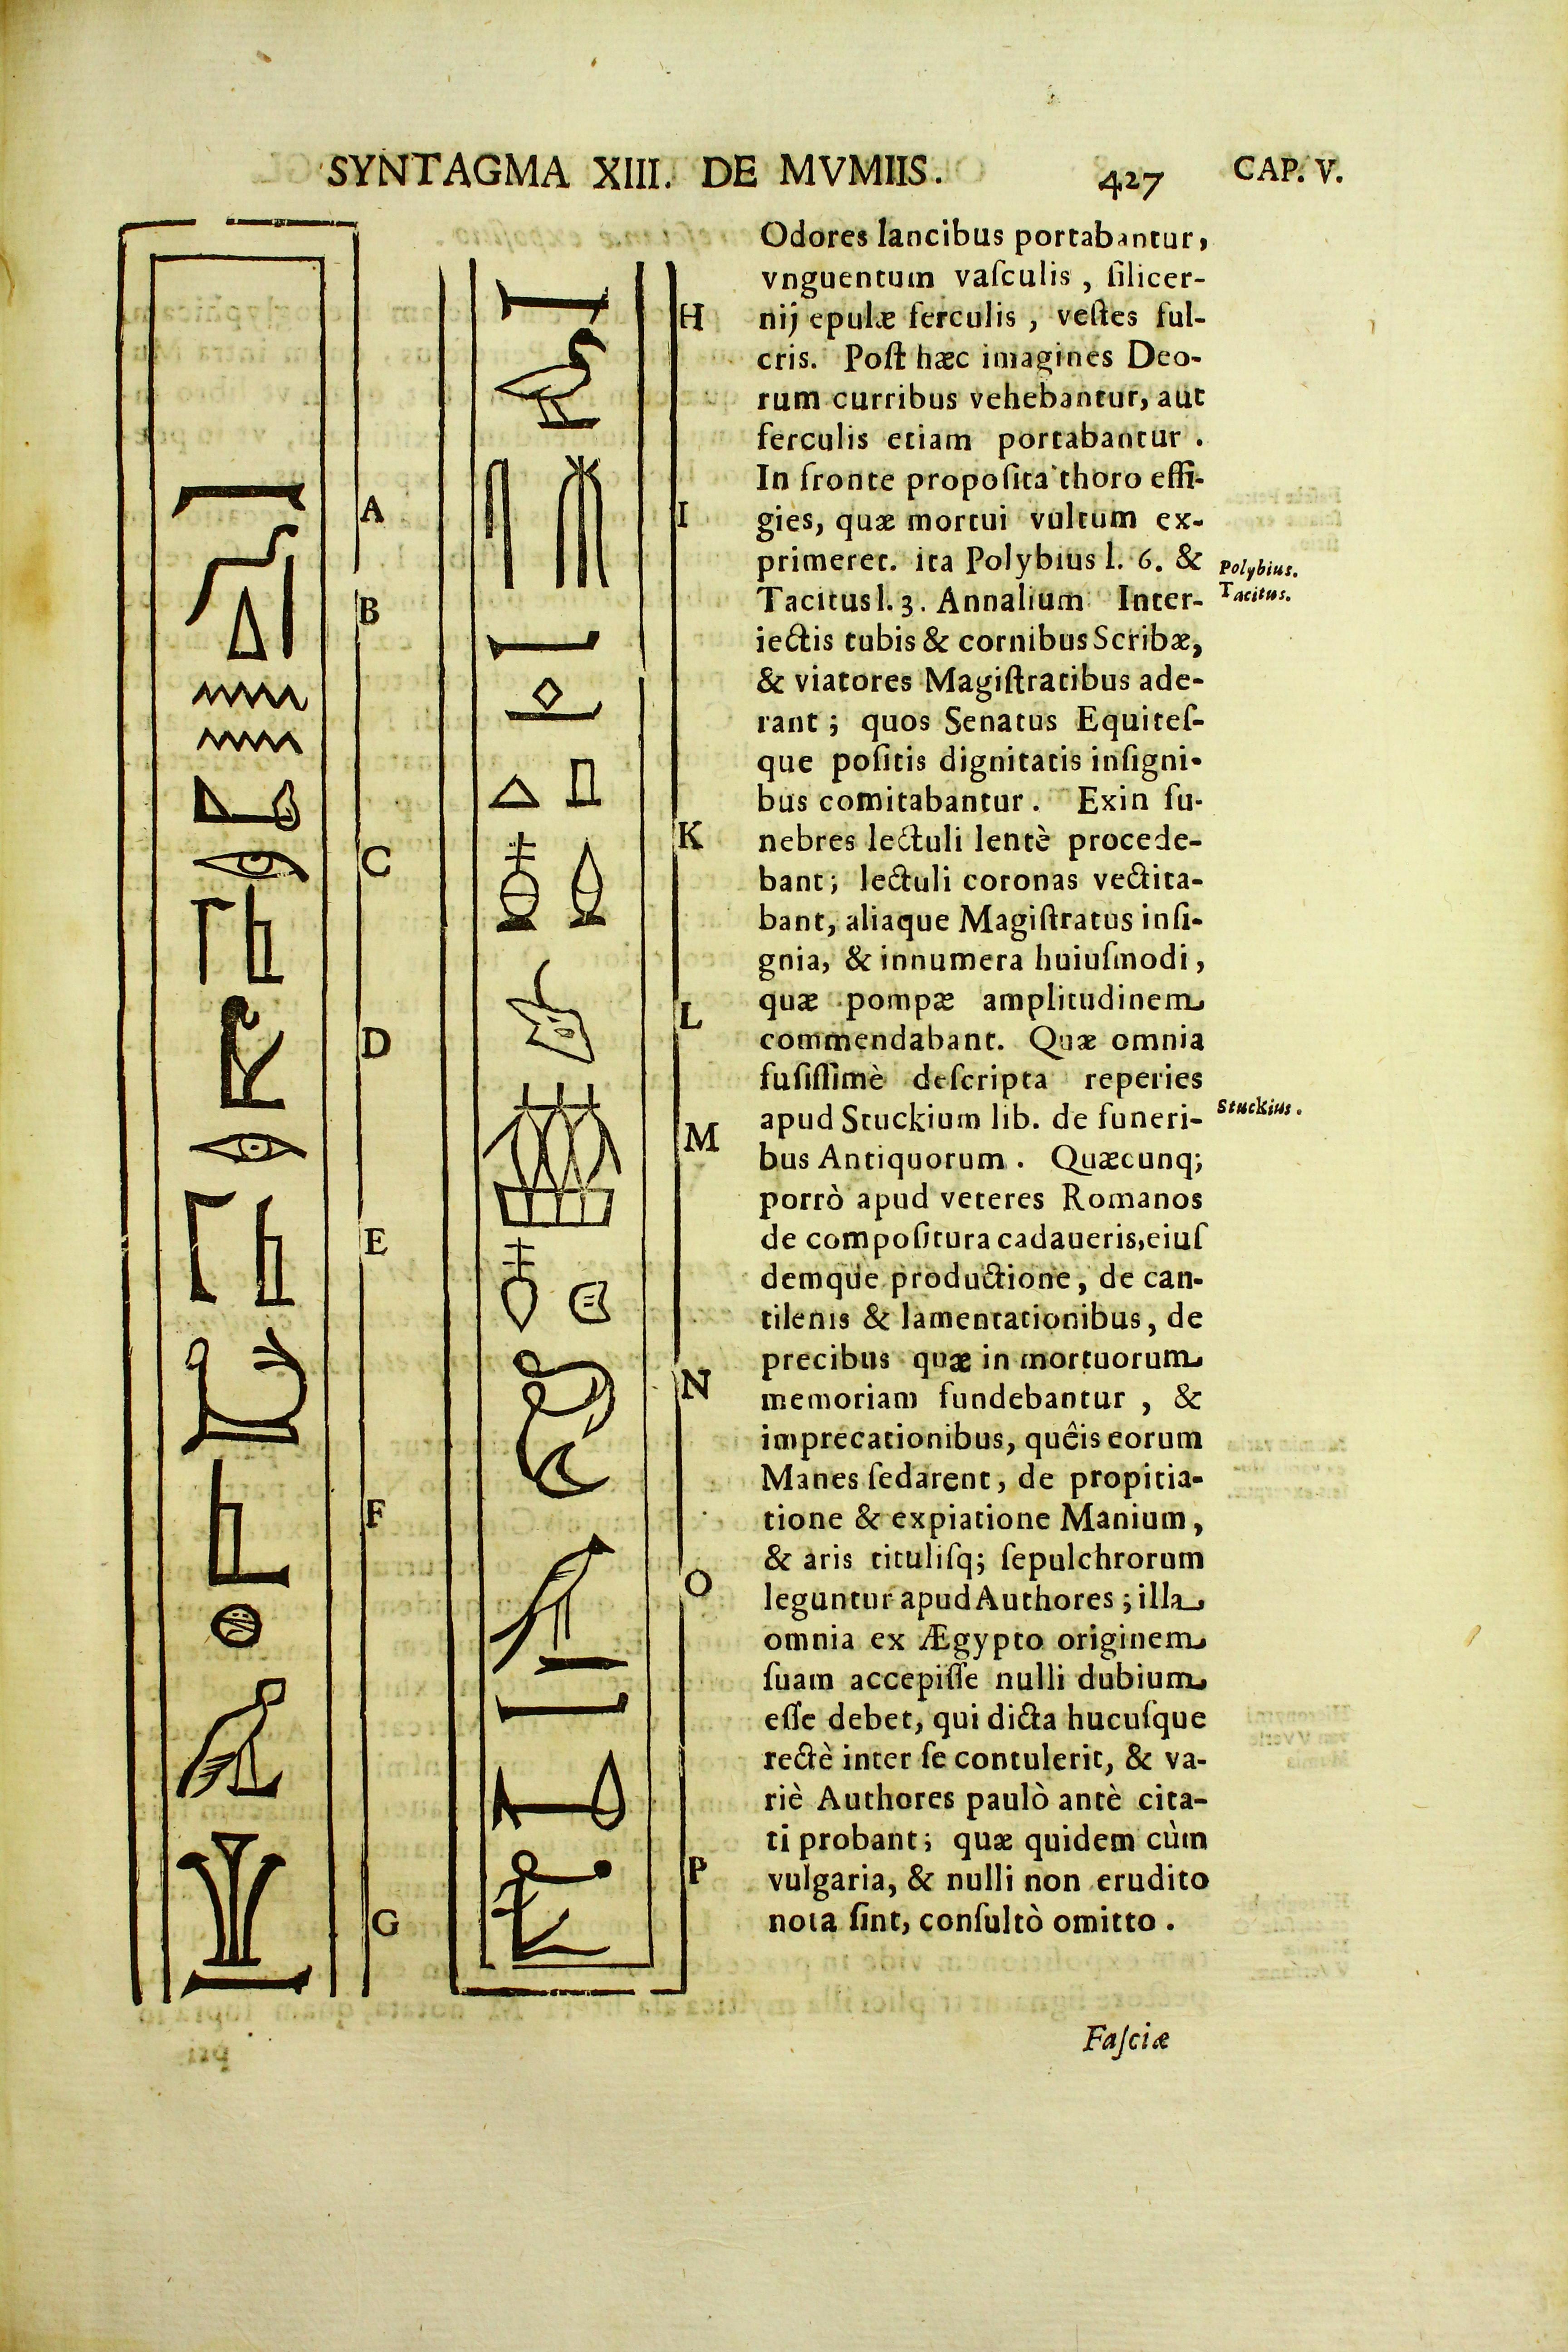 SYNTAGMA XIII. DE MVMIIS. 427 CAP. V.
A
B
C
D
E
F
G
H
I
K
L
M
N
O
P
Odores lancibus portabantur,
vnguentum vaſculis, ſilicer-
nij epulæ ferculis, veſtes ful-
cris. Poſt hæc imagines Deo-
rum curribus vehebantur, aut
ferculis etiam portabantur.
In fronte propoſita thoro effi-
gies, quæ mortui vultum ex-
primeret. ita Polybius l. 6. &
Polybius.
Tacitus l. 3. Annalium Inter-
Tacitus.
iectis tubis & cornibus Scribæ,
& viatores Magiſtratibus ade-
rant; quos Senatus Equiteſ-
que poſitis dignitatis inſigni-
bus comitabantur. Exin fu-
nebres lectuli lentè procede-
bant; lectuli coronas vectita-
bant, aliaque Magiſtratus inſi-
gnia, & innumera huiuſmodi,
quæ pompæ amplitudinem
commendabant. Quæ omnia
fuſiſſimè deſcripta reperies
apud Stuckium lib. de funeri-
Stuckius.
bus Antiquorum. Quæcunq;
porrò apud veteres Romanos
de compoſitura cadaueris, eiuſ
demque productione, de can-
tilenis & lamentationibus, de
precibus quæ in mortuorum
memoriam fundebantur, &
imprecationibus, quêis eorum
Manes ſedarent, de propitia-
tione & expiatione Manium,
& aris tituliſq; ſepulchrorum
leguntur apud Authores; illa
omnia ex Ægypto originem
ſuam accepiſſe nulli dubium
eſſe debet, qui dicta hucuſque
rectè inter ſe contulerit, & va-
riè Authores paulò antè cita-
ti probant; quæ quidem cùm
vulgaria, & nulli non erudito
nota ſint, conſultò omitto.
Faſciæ